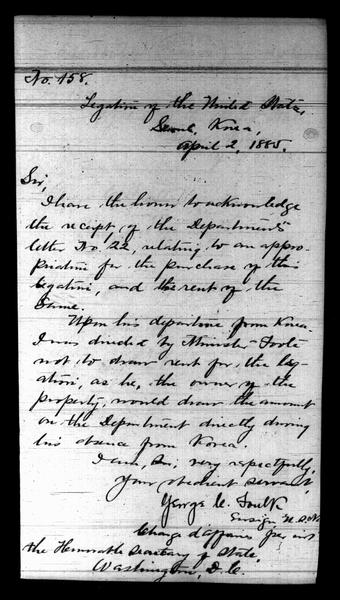 No. 158.
Legation of the United States,
Seoul, Korea,
April 2, 1885.
Sir,
I have the honor to acknowledge
the receipt of the Department's
letter No. 22, relating to an appro-
priation for the purchase of this
legation, and the rent of the
same.
Upon his departure from Korea
I was directed by Minister Foote
not to draw rent for the leg-
ation, as he, the owner of the
property, would draw the amount
on the Department directly during
his absence from Korea.
I am, Sir, very respectfully,
Your obedient servant,
George C. Foulk
Ensign, U.S.N.
Chargé d'affaires
the Honorable Secretary of State,
Washington, D.C.